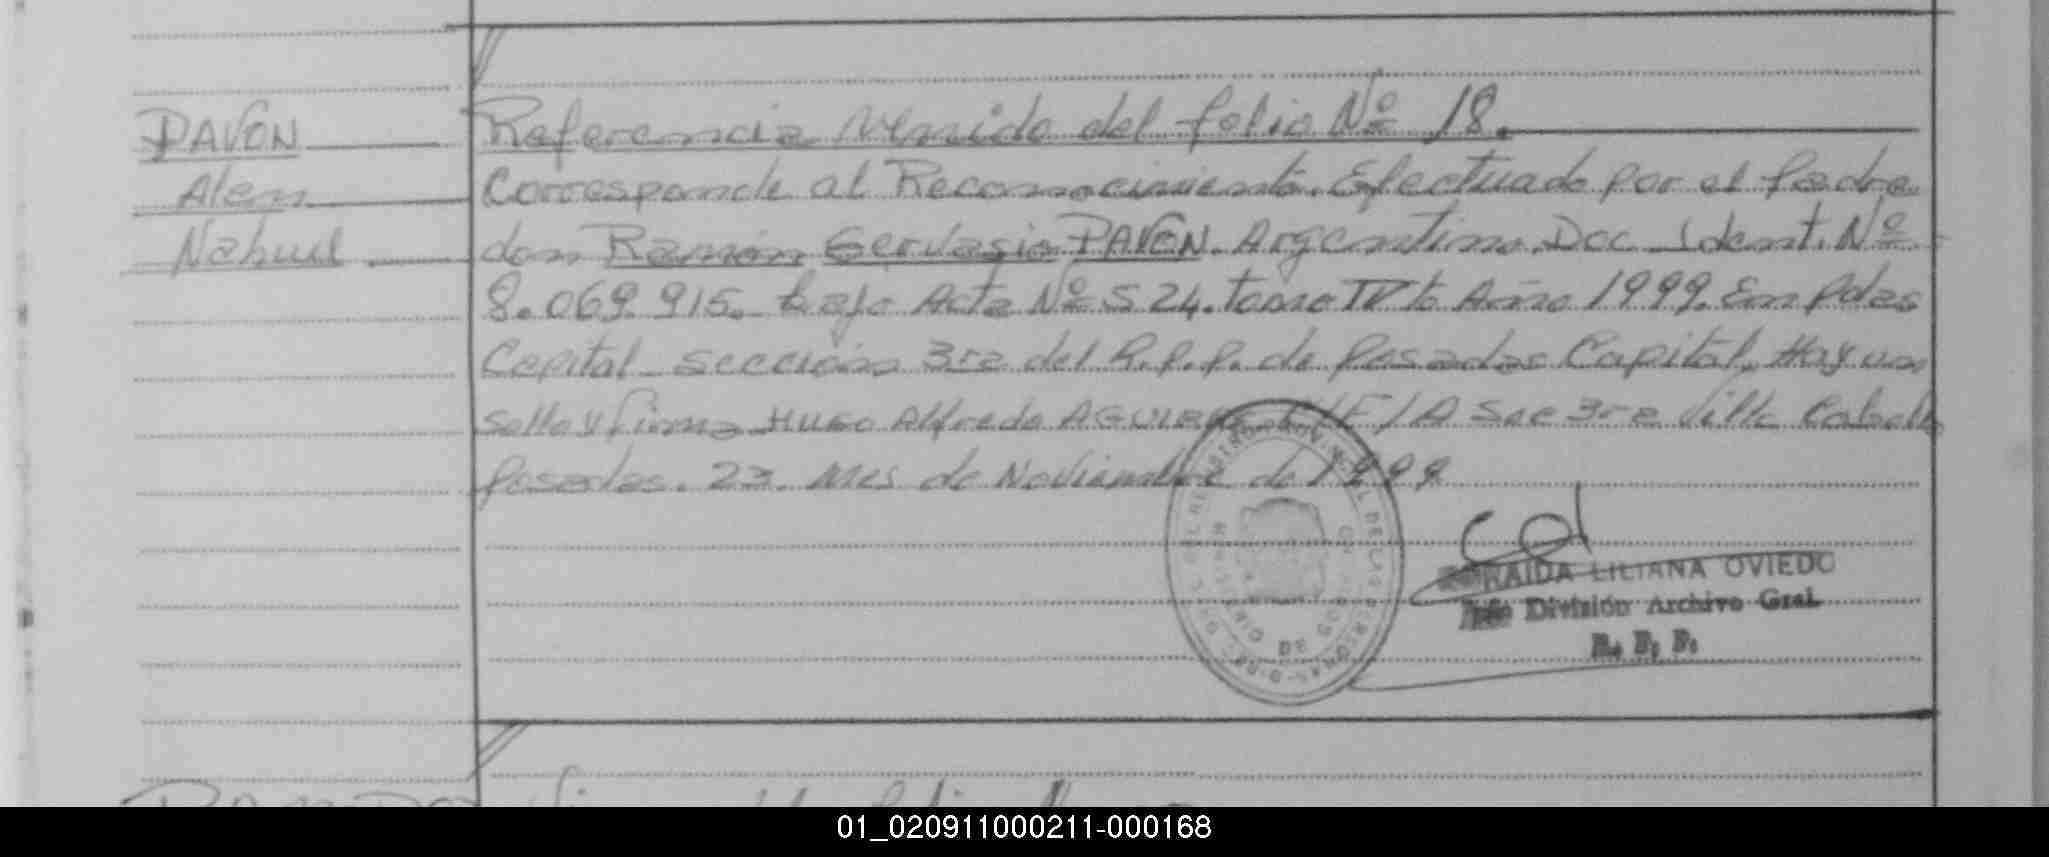 PAVON
Alem
Nahuel
Referencia Venido del folio Nº 18.
Corresponde al Reconocimiento. Efectuado por el Padre
don Ramón Gervasio PAVON. Argentino. Doc. Ident. Nº
8.069.915. bajo Acta Nº 524. tomo IV to Año 1999. En Pdas
Capital sección 3ra del R.P.P. de Posadas Capital. Hay un
sello y firma HUGO Alfredo AGUIRRE Sec 3ra Villa Cabello
Posadas. 23. Mes de Noviembre de 1999
LILIANA OVIEDO
División Archivo Gral.
R. P. P.
01_020911000211-000168